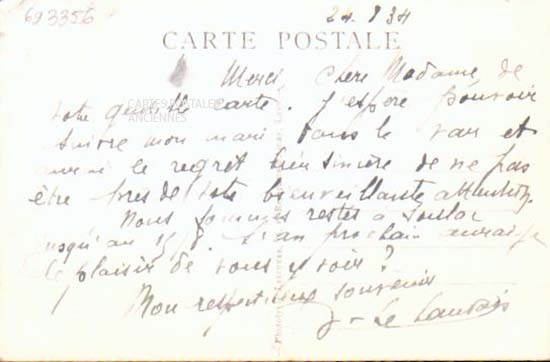 693356
24. 8 34
CARTE POSTALE
Merci, chère Madame, de
votre gentille carte. J'espère pouvoir
suivre mon mari dans le var et
aurai le regret bien sincère de ne pas
être près de votre bienveillante attention.
Nous sommes restés à Soulac
jusqu'au 15/8. L'an prochain aurai-je
le plaisir de vous y voir?
Mon respectueux souvenir
CARTES POSTALES
ANCIENNES